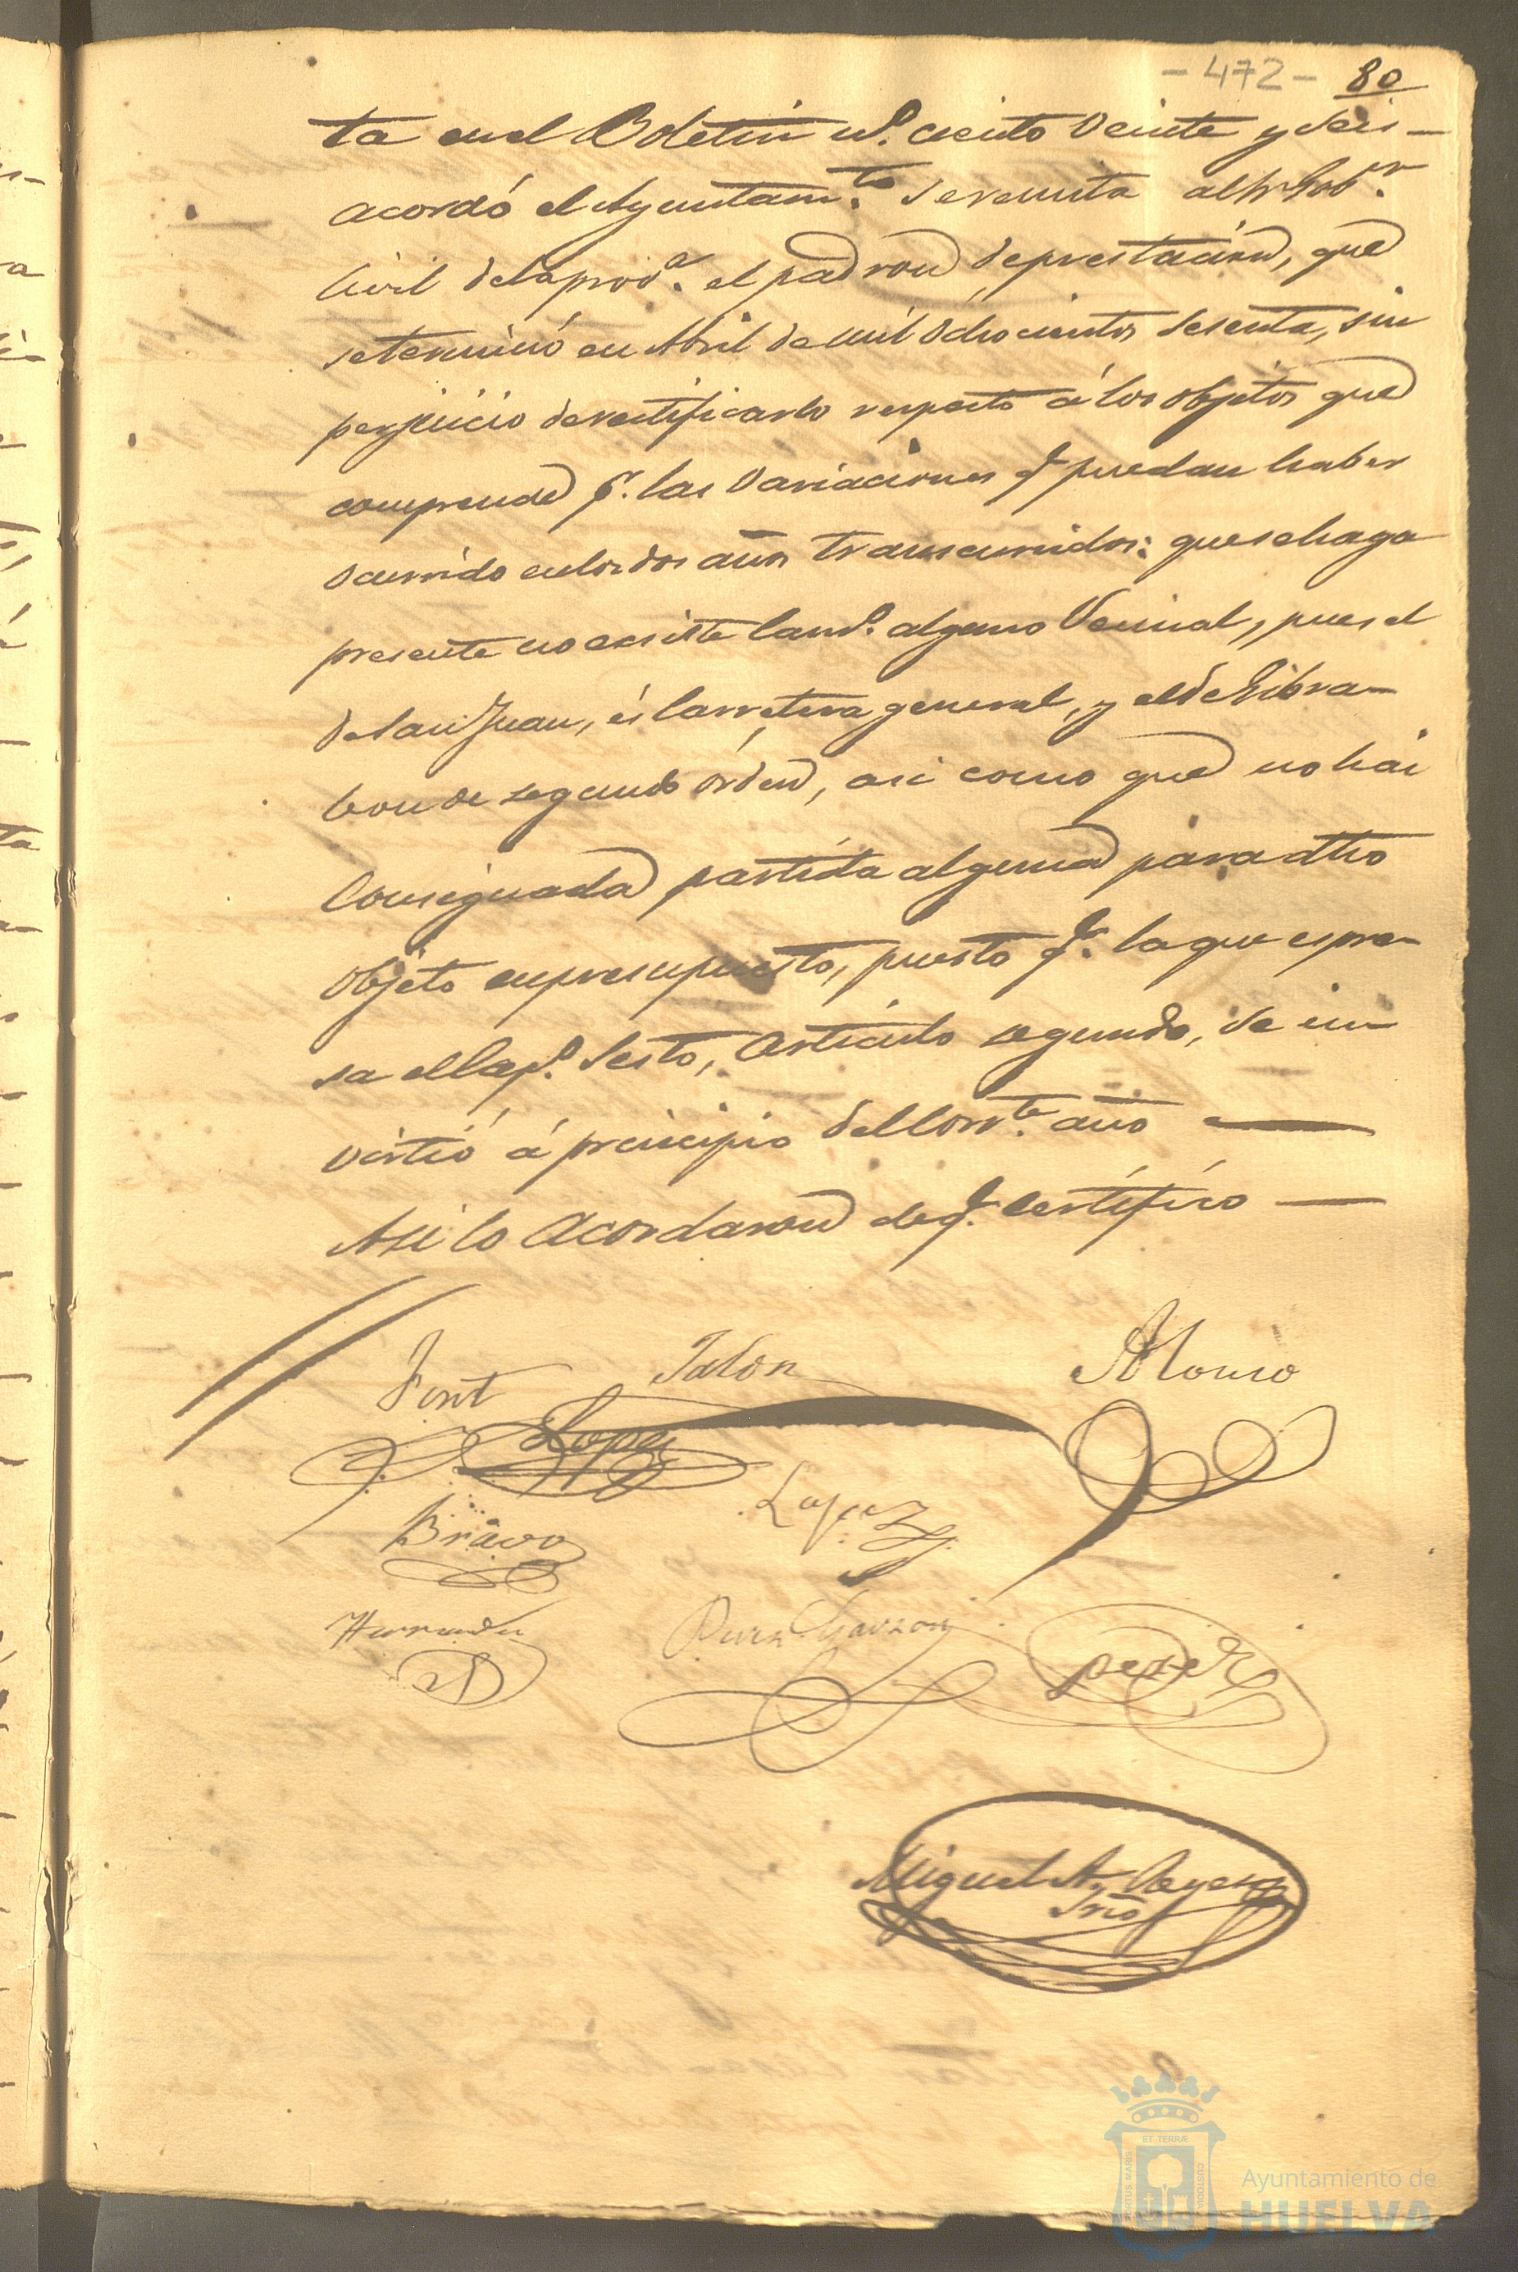 - 472 - 80
ta en el Boletin nº. ciento veinte y seis -
acordó el Ayuntam.to se remita al Sr Gob.or
Civil de la prov.a el padron de prestacion, que
se terminó en Abril de mil ochocientos sesenta, sin
perjuicio de rectificarlo respecto á los objetos que
comprende p.r las variaciones q.e puedan haber
ocurrido en los dos años transcurridos: que se haga
presente no ecsiste Cam.o alguno vecinal, pues el
de San Juan, és Carretera general, y el de Gibra-
leon de segundo órden, asi como que no hai
Consignada partida alguna para dho
objeto en presupuesto, puesto q.e la que espre-
sa el Cap.o Sesto, Articulo segundo, se in-
virtió á principio del Corr.te año
Asi lo Acordaron de q.e Certifico
Font Jalon Alonso
Lopez
Bravo Lopez
Hernandez Perez Garzon perez
Miguel A. Reyes
Srio
ET TERRÆ
PORTUS MARIS
CUSTODIA
Ayuntamiento de
HUELVA